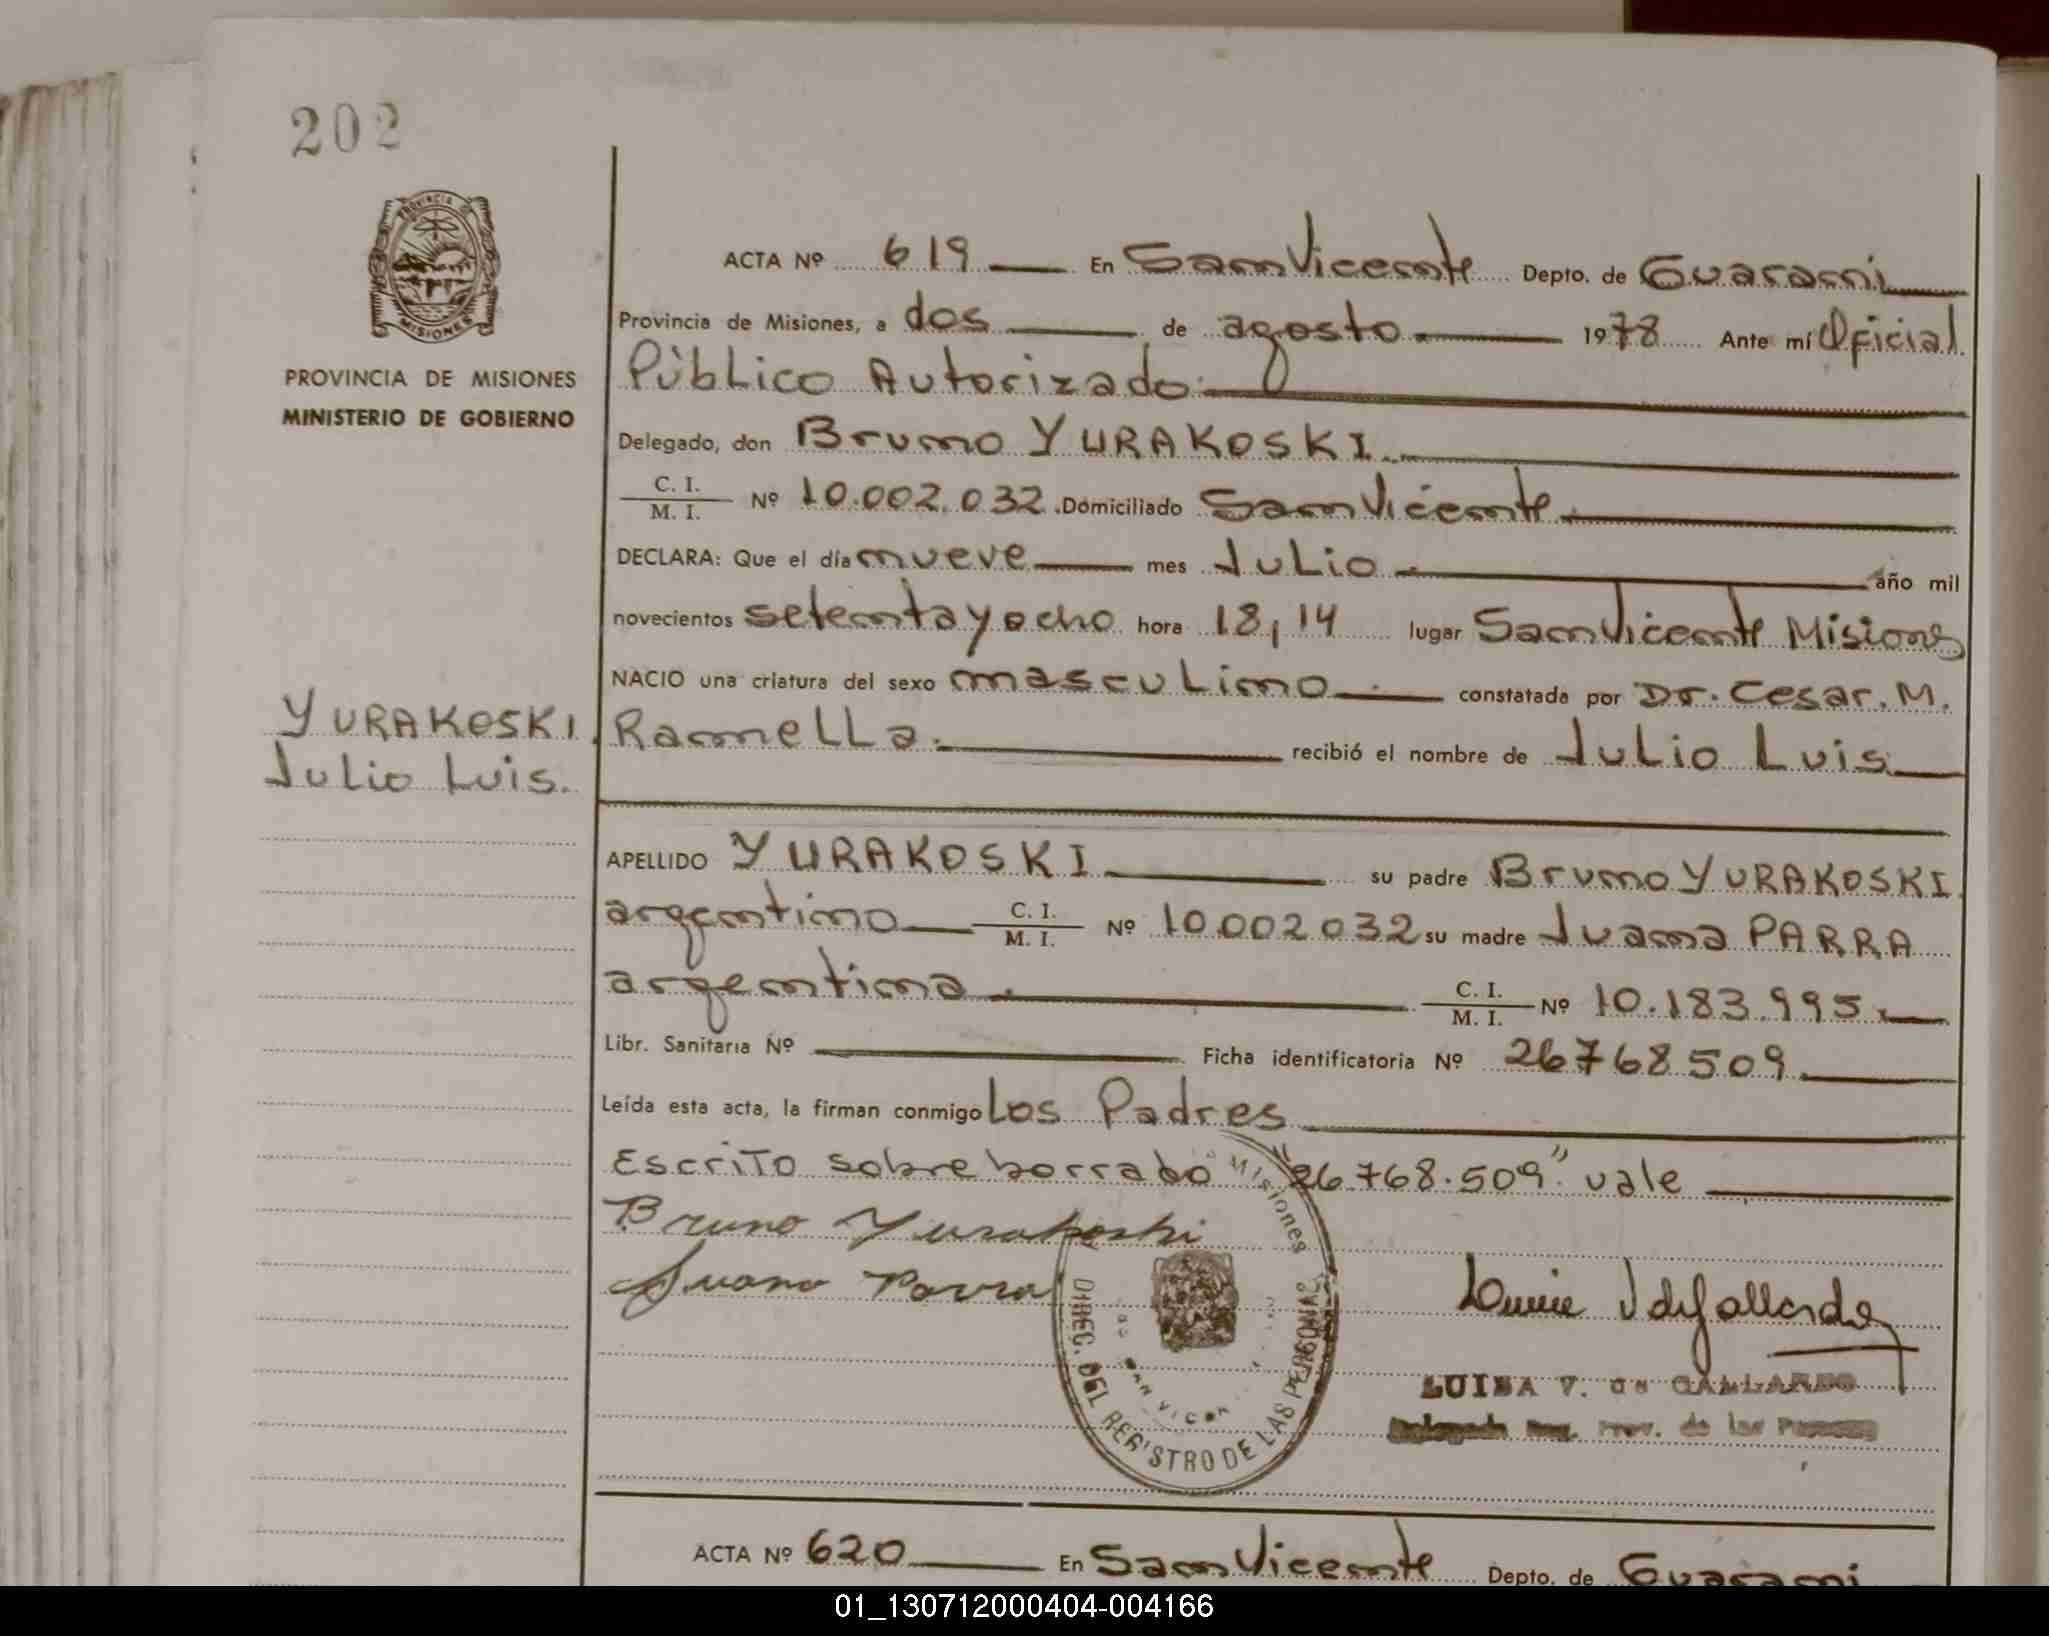 202
PROVINCIA DE MISIONES
PROVINCIA DE MISIONES
MINISTERIO DE GOBIERNO
ACTA Nº 619 En San Vicente Depto. de Guarani
Provincia de Misiones, a dos de agosto 1978 Ante mí Oficial
Público Autorizado
Delegado, don Bruno YURAKOSKI
C. I.
M. I. Nº 10.002.032 Domiciliado San Vicente
DECLARA: Que el día nueve mes Julio año mil
novecientos setenta y ocho hora 18,14 lugar San Vicente Misiones
NACIO una criatura del sexo masculino constatada por Dr. Cesar. M.
YURAKOSKI Ramella recibió el nombre de Julio Luis
Julio Luis.
APELLIDO YURAKOSKI su padre Bruno YURAKOSKI
argentino C. I.
M. I. Nº 10.002.032 su madre Juana PARRA
argentina C. I.
M. I. Nº 10.183.995
Libr. Sanitaria Nº Ficha identificatoria Nº 26768509
Leída esta acta, la firman conmigo Los Padres
Escrito sobre borrado "26768.509" vale
Bruno Yurakoski
Juana Parra
Misiones
DIREC. DEL REGISTRO DE LAS PERSONAS
LUISA V. de GALLARDO
Delegada Reg. Prov. de las Personas
ACTA Nº 620 En San Vicente Depto. de Guarani
01_130712000404-004166